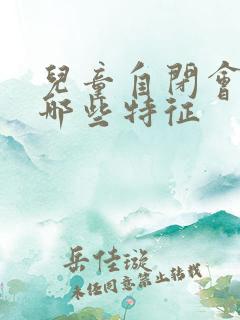 兒童自閉會
哪些特征
岳佳璇
未经同意禁止转载